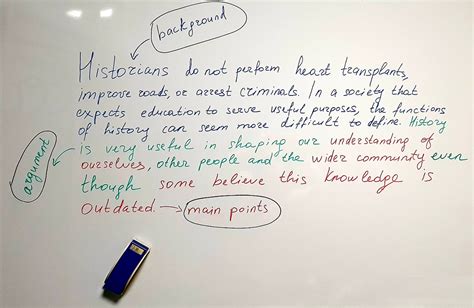 background
Historians do not perform heart transplants,
improve roads, or arrest criminals. In a society that
expects education to serve useful purposes, the functions
of history can seem more difficult to define. History
is very useful in shaping our understanding of
ourselves, other people and the wider community even
though some believe this knowledge is
Outdated → main points
argument